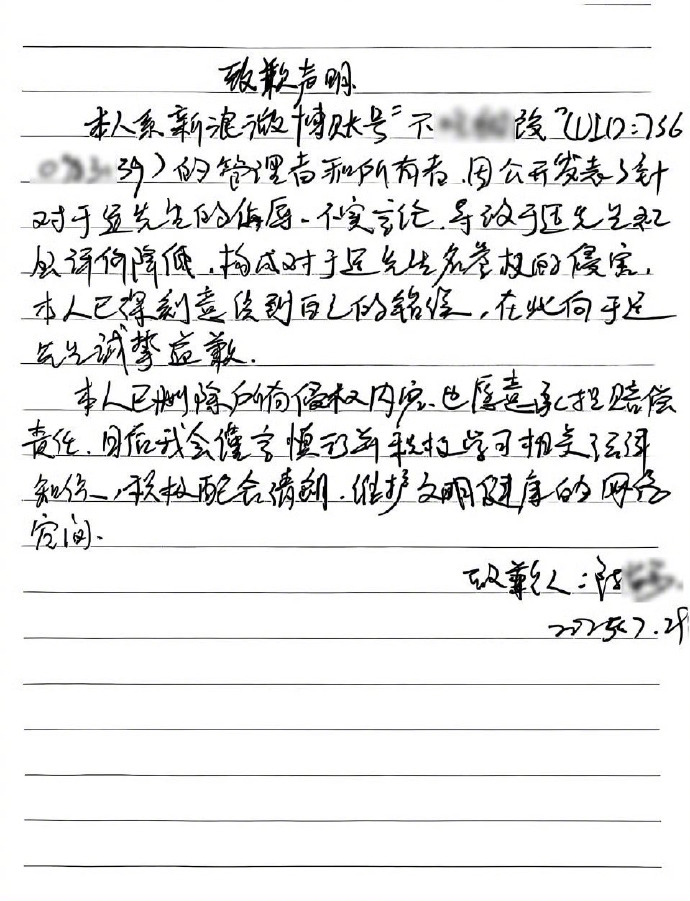 致歉声明
本人系新浪微博账号"不 改"(UID:756
39)的管理者和所有者,因公开发表了针
对于适先生的侮辱、不实言论,导致于适先生社
会评价降低,构成对于适先生名誉权的侵害,
本人已深刻意识到自己的错误,在此向于适
先生诚挚致歉.
本人已删除所有侵权内容,也愿意承担赔偿
责任,日后我会谨言慎行并积极学习相关法律
知识,积极配合清朗,维护文明健康的网络
空间.
致歉人:陈
2025.7.29